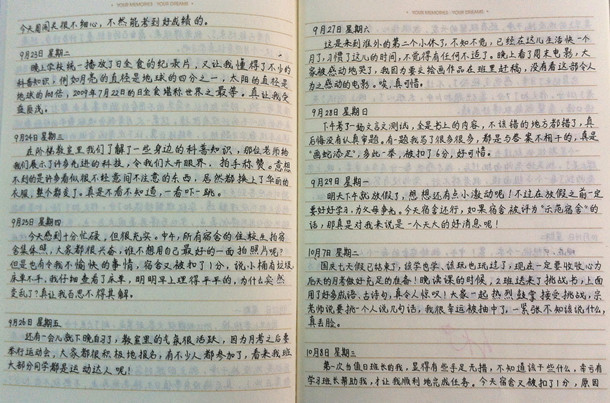 YOUR MEMORIES · YOUR DREAMS
今天看问天很不细心，不然能考到好成绩的。
9月23日 星期二
晚上学校统一播放了日全食的纪录片，又让我懂得了不少的
科普知识，例如月亮的直径是地球的四分之一，太阳的直径是
地球的 倍，2009年7月22日的日全食堪称世界之最等。真让我受
益匪浅。
9月24日 星期三
在阶梯教室里我们了解了一些身边的科普知识，那位老师给
我们展示了许多先进的科技，令我们大开眼界，拍手称赞。意想
不到的是许多看似很不经意间不注意的东西，居然都换上了华丽的
衣服，整个都变了。真是不看不知道，一看吓一跳。
9月25日 星期四
今天感到十分忙碌，但很充实。中午，所有宿舍的住校生拍宿
舍集体照，大家都很兴奋，谁不想用自己最好的一面拍照片呢？
但是也有令我不愉快的事情，宿舍又被扣了1分，说小楠有垃圾
床单不平，我仔细查看了床单，明明早上理得平平的，为什么突然
变乱了？真让我百思不得其解。
9月26日 星期五
还有一台儿就下晚自习了，教室里的气氛很活跃，因为月考之后要
举行运动会，大家都很积极地报名，有不少人都参加了，看来我班
大部分同学都是运动达人呢！
YOUR MEMORIES · YOUR DREAMS
9月27日 星期六
这是来到淮外的第二个小休了，不知不觉，已经在这儿生活快一个
月了，习惯了这儿的时间，不觉得有任何不适了。晚上看了周末电影，大
家被感动地哭了，我因为要去绘画作品在班里赶稿，没有看这部令人
为之感动的电影。唉，真可惜。
9月28日 星期日
下午考了一场文言文测试，全是书上的内容，不该错的地方都错了，真
后悔没有认真审题。有一题我写了很多很多，都是与答案不相干的，真是
“画蛇添足”，多此一举，被扣了6分，好可惜。
9月29日 星期一
明天下午就放假了，想想还有点小激动呢！不过在放假之前一定
要好好学习，力父母争光。今天宿舍还行，如果宿舍被评为“示范宿舍”的
话，那真是对我来说是一个天大的好消息呢！
10月7日 星期二
国庆七天假已结束了，该学也学、该玩也玩过了，现在一定要收收心为
后天的月考做好充足的准备！晚读课的时候，2班送来了挑战书，上面
用了好多成语、古诗句，真令人惊叹！大家一起热烈鼓掌接受挑战，宗
老师说要挑一个人说几句话，我很幸运被抽中了，一紧张不知该说什么，
真丢脸。
10月8日 星期三
第一次当值日班长的我，显得有些手足无措，不知道该干些什么，幸亏有
学习班长帮助我，才让我顺利地完成任务。今天宿舍又被扣了1分，原因